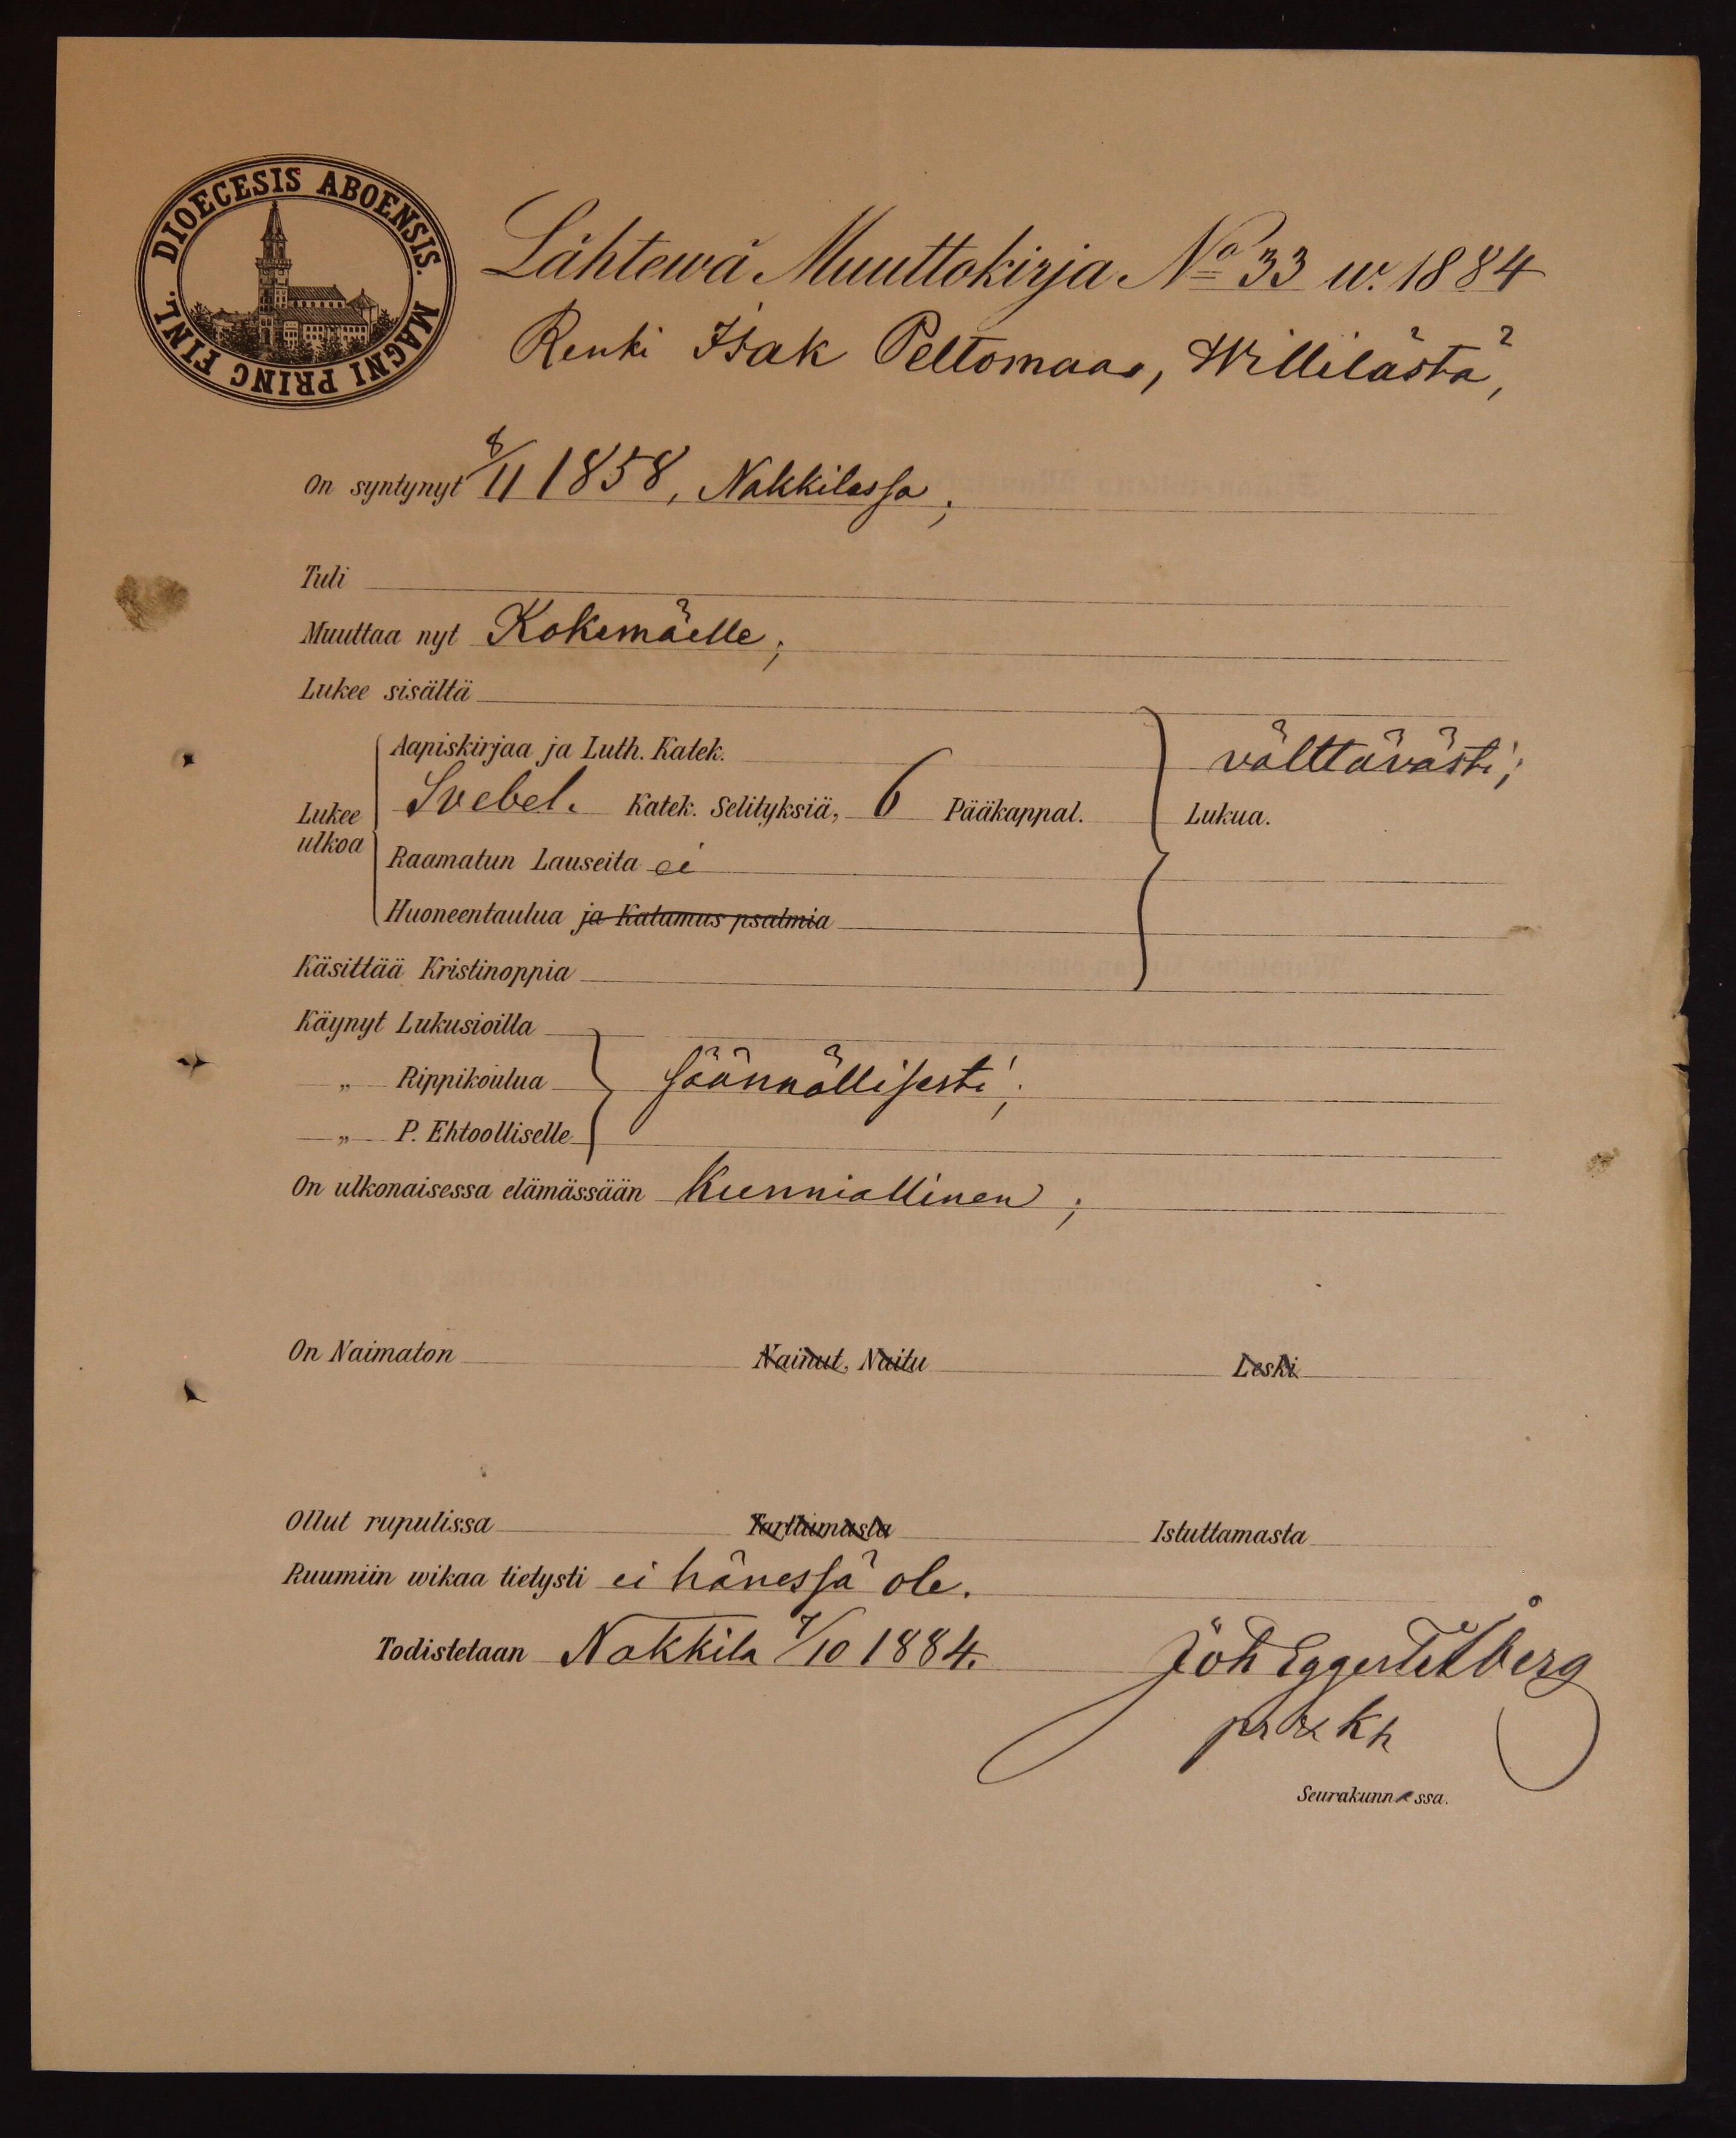 DIOECESIS ABOENSIS. MAGNI PRINC FINL.
Lähtewä Muuttokirja No 33 w. 1884
Renki Isak Peltomaa, Willilästä,
On syntynyt 8/11 1858, Nakkilassa;
Tuli
Muuttaa nyt Kokemäelle;
Lukee sisältä
Aapiskirjaa ja Luth. Katek. välttävästi;
Lukee ulkoa Svebel. Katek. Selityksiä, 6 Pääkappal. Lukua.
Raamatun Lauseita ei
Huoneentaulua ja Katumus psalmia
Käsittää Kristinoppia
Käynyt Lukusioilla
„ Rippikoulua säännöllisesti;
„ P. Ehtoolliselle
On ulkonaisessa elämässään kunniallinen;
On Naimaton Nainut, Naitu Leski
Ollut rupulissa Tarttumasta Istuttamasta
Ruumiin wikaa tietysti ei hänessä ole.
Todistetaan Nakkila 7/10 1884. Joh Eggert
Seurakunnassa.